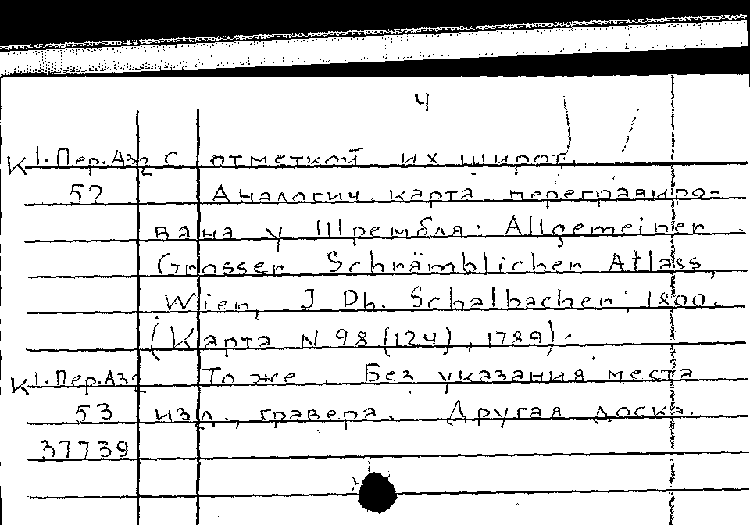 4
К 1-Пер.Аз2 с отметкой их широт.
52 Аналогич. карта перегравиро-
вана у Шрембля: Allgemeiner
Grosser Schrämblicher Atlass,
Wien, J Ph. Schalbacher, 1800.
(Карта N 98 (124), 1789).
К 1-Пер.Аз2 То же. Без указания места
53 изд., гравера. Другая доска.
37739